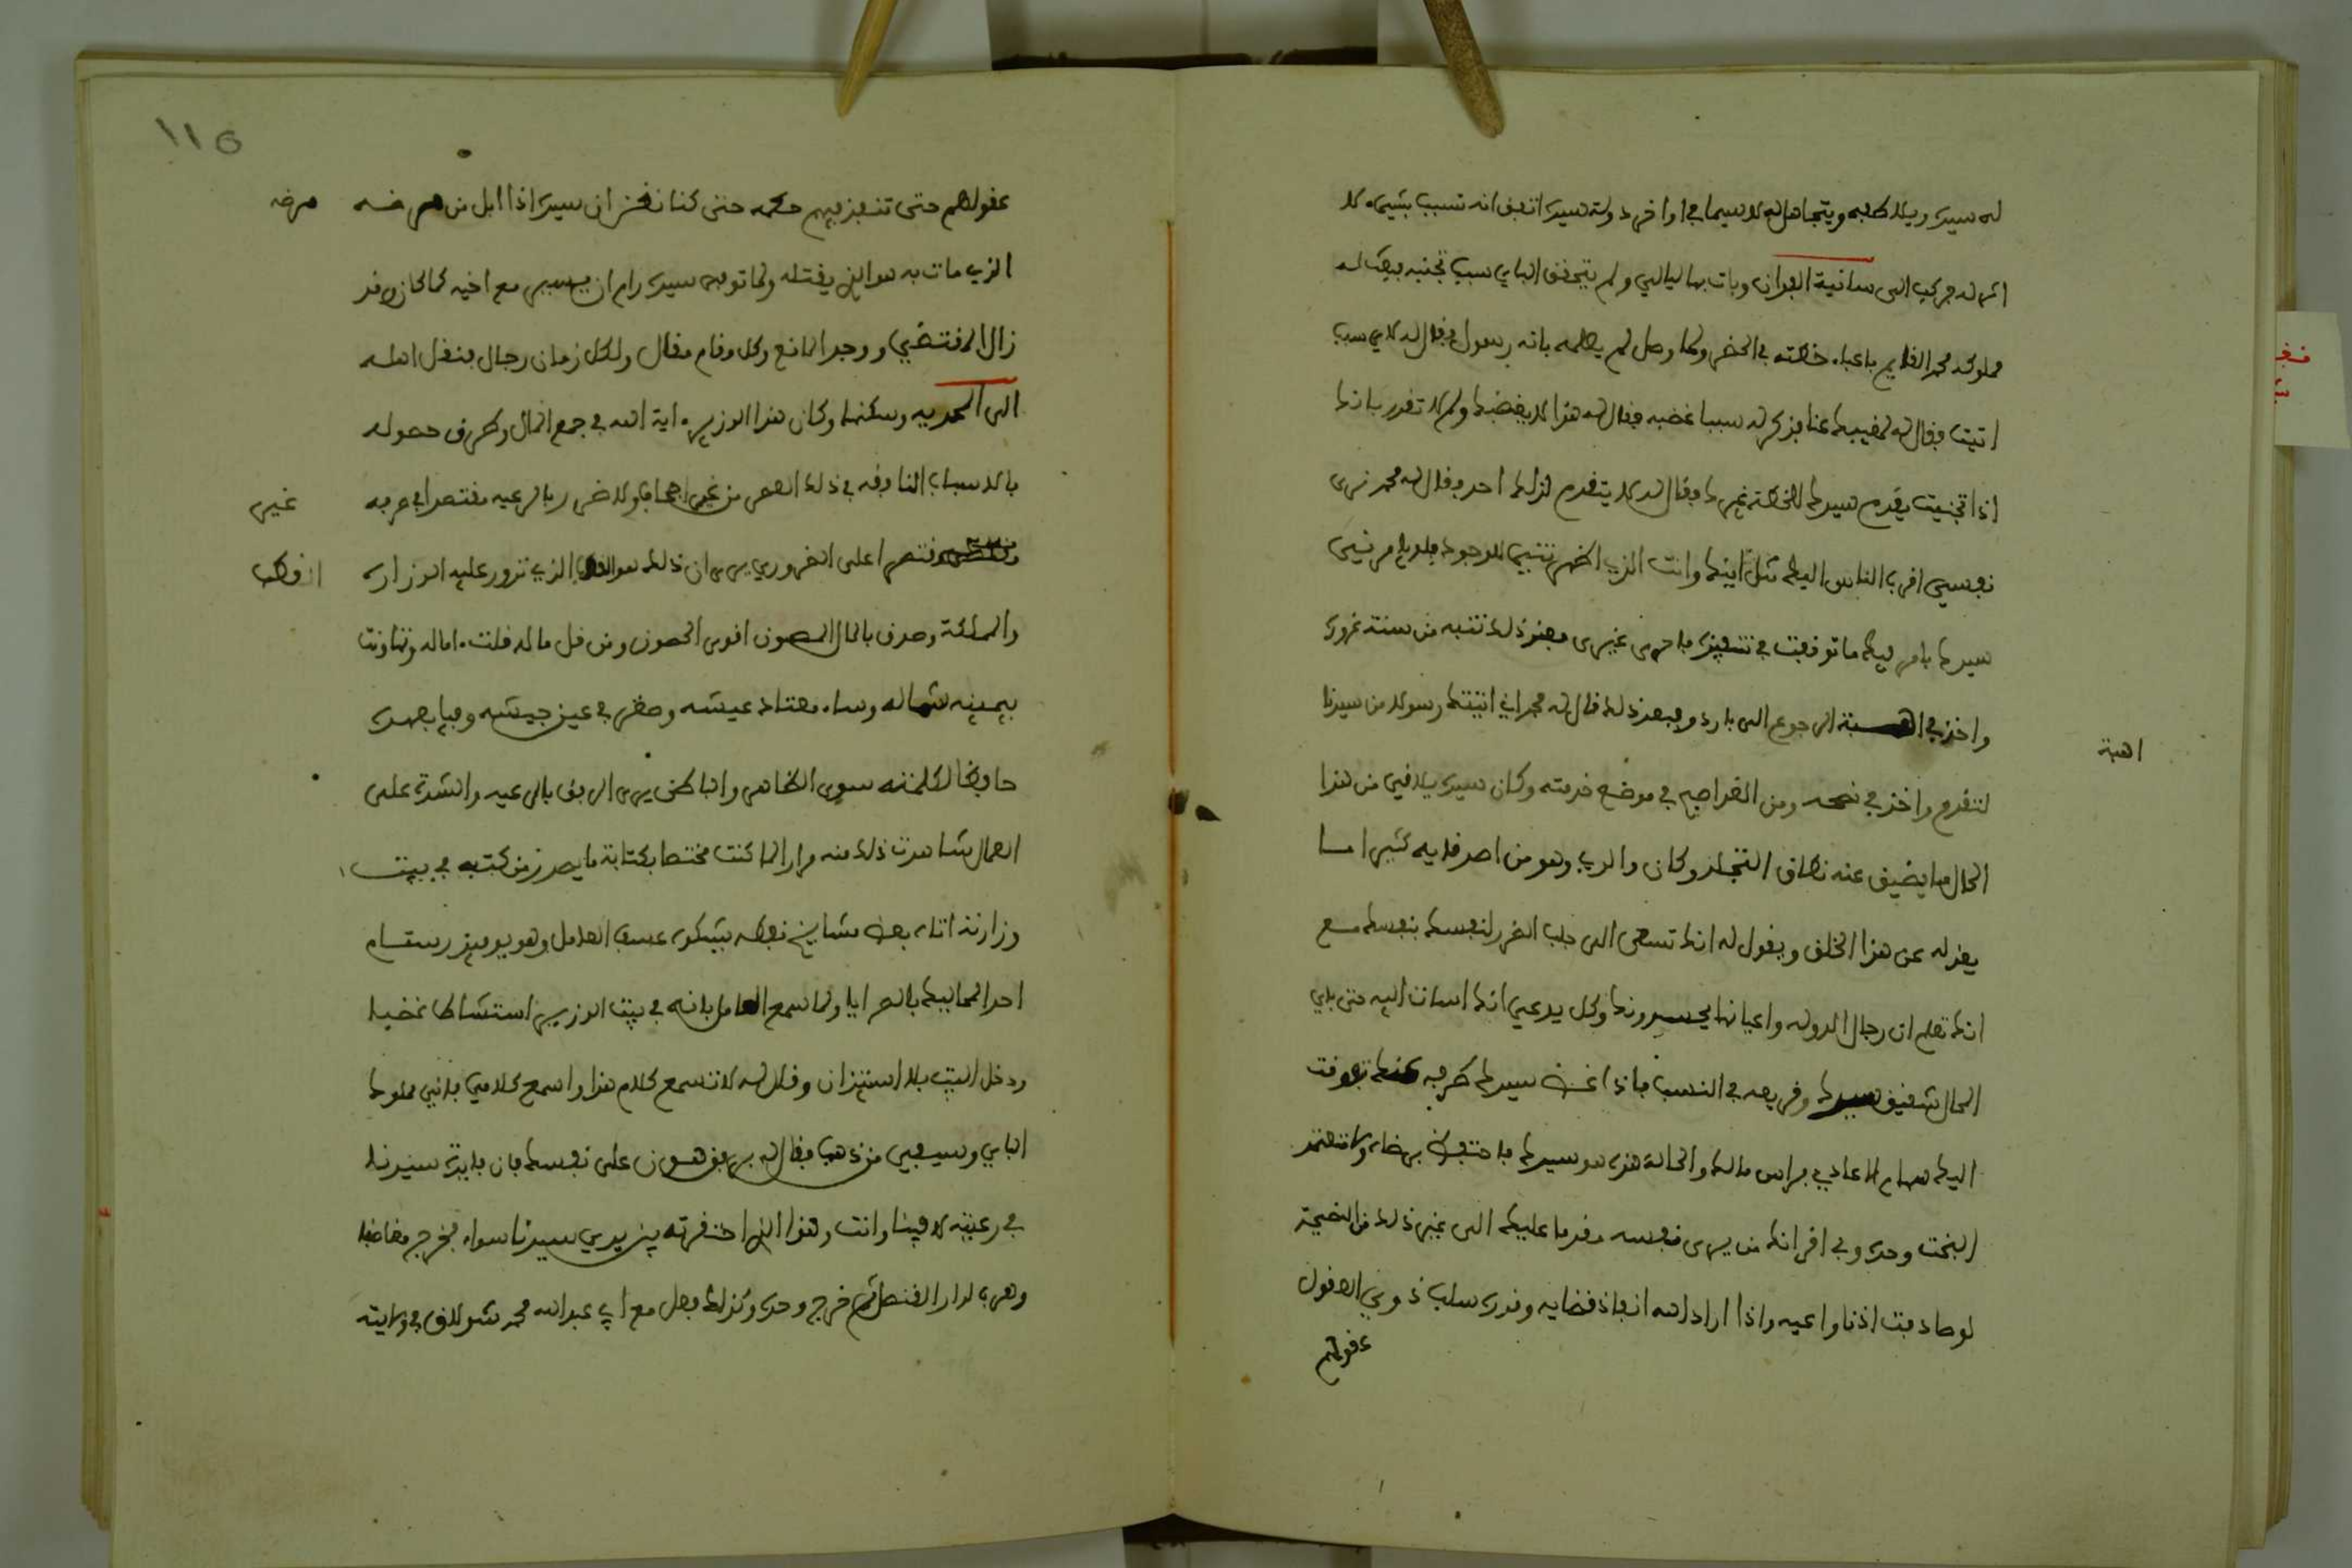 له سيده ويلاطفه ويتجاهل له لا سيما في اواخر دولة سيده اتفق انه تسبب بشيء لا
اثر له فركب الى سانية البيران وبات بها ليالي ولم يتحقق الباي سبب تجنبه فبعث له
مملوكه محمد القايم باعباء خطته في الحضر ولما وصل لم يعلمه بانه رسول فقال له لاي سبب
اتيت فقال له لمغيبك عنا فذكر له سببا غضبه فقال له هذا لا يغضبك ولم لا تقدر بانك
اذا تجنبت يقدم سيدك للخطة غيرك فقال له لا يتقدم لذلك احد وقال له محمد نرى
نفسي اقرب الناس اليك مثل ابنك وانت الذي اظهرتني للوجود فلو يامرني
سيدك بامر فيك ما توقفت في تنفيذه فاحرى غيري فعند ذلك تنبه من سنة غروره
واخذ في الرجوع الى باردو فبعد ذلك قال له محمد اني اتيتك رسولا من سيدنا
لتقدم واخذ في نصحه ومن الغد اصبح في موضع خدمته وكان سيده يلاقي من هذا
الحال ما يضيق عنه نطاق التجلد وكان والدي وهو من اصدقايه كثيرا ما
يعذله عن هذا الخلق ويقول له انك تسعى الى جلب الضرر لنفسك بنفسك مع
انك تعلم ان رجال الدولة واعيانها يحسدونك وكل يدعي انك اسات اليه حتى باي
الحال شقيق سيدك وقريعه في النسب فاذا غض سيدك طرفه عنك تفوقت
اليك سهام الاعادي فراس مالك والحالة هذه هو سيدك فاحتفظ برضاه ولا تعتمد
البخت وحده وفي اقرانك من يرى نفسه مقدما عليك الى غير ذلك من النصيحة
لو صادفت اذنا واعيه واذا اراد الله انفاذ قضايه وقدره سلب ذوي العقول
عقولهم
اهبة
١١٥
عقولهم حتى تنفذ فيهم حكمه حتى كنا نحزر ان سيده اذا ابل من مرضه
مرضه
الذي مات به هو الذي يقتله ولما توفي سيده رام ان يسير مع اخيه كما كان وقد
زال المقتضي ووجد المانع ولكل مقام مقال ولكل زمان رجال فنقل اهله
الى المحمديه وسكنها وكان هذا الوزير اية الله في جمع المال وطرق حصوله
بالاسباب النافقه في ذلك العصر من غير اجحاف ولا ضرر بالرعيه مقتصدا في صرفه
غير
مقتصرا على الضروري يرى ان ذلك هو الذي تدور عليه الوزاره
القطب
والمملكة وصرف بالمال المصون اقوى الحصون ومن قل ماله قلت اماله وتهاونت
بيمينه شماله وساء معتاد عيشه وصغر في عين جيشه وفيا بعهده
حافظا لكلمته سوي الظاهر والباطن يرى الرفق بالرعيه والشدة على
العمال شاهدت ذلك منه مرارا لما كنت مختصا بكتابة ما يصدر من كتبه في بيت
وزارته اتاه بعض مشايخ نفطه بشكوى عسف العامل وهو يوميذ رستم
احد المماليك بالسرايا ولما سمع العامل بانه في بيت الوزير استشاط غضبا
ودخل البيت بلا استيذان وقال له لا تسمع كلام هذا واسمع كلامي فانني مملوك
الباي وسيفي من ذهب فقال له برفق هون على نفسك فان فايدة سيدنا
في رعيته لا فينا وانت وهذا الذي احتقرته بين يدي سيدنا سواء فخرج مغاضبا
وهرب لدار القنصل ثم خرج وحده وكذلك فعل مع ابي عبد الله محمد شولاق في ولايته